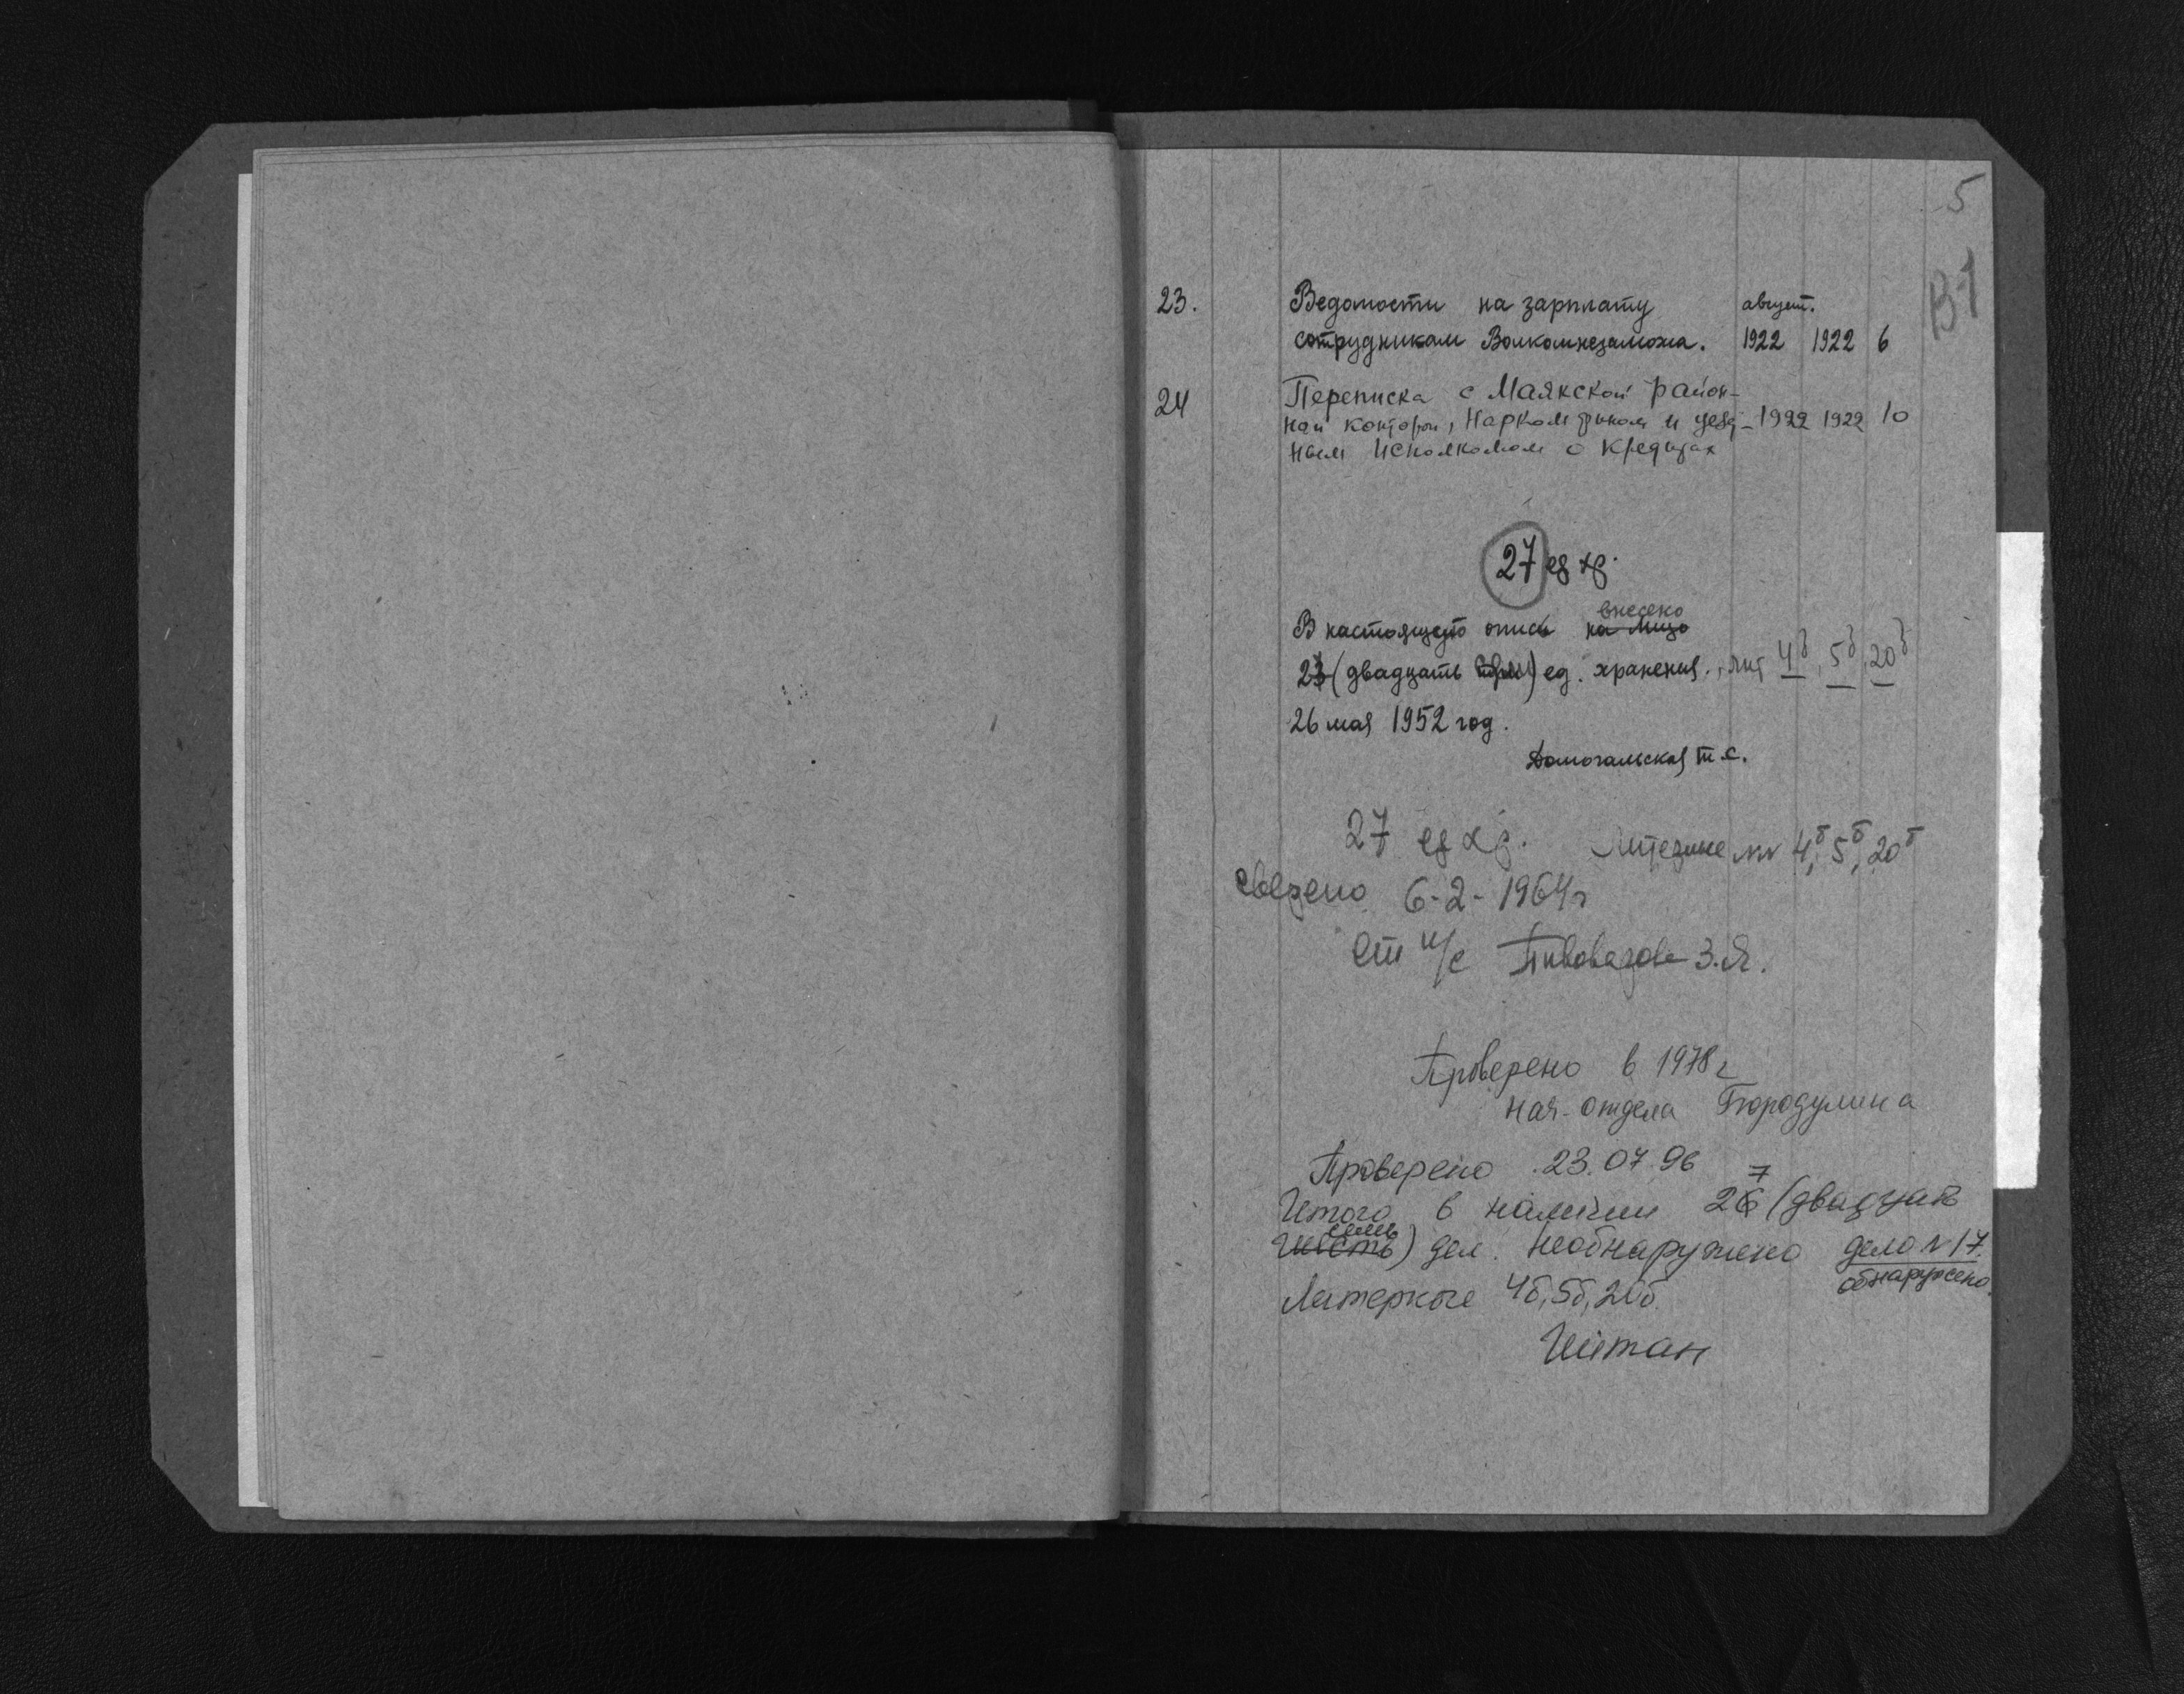 5
В-1
23. Ведомости на зарплату август.
сотрудникам Волкомнезаможа. 1922 1922 6
24 Переписка с Маякской район-
ной конторой, Наркомфином и уезд- 1922 1922 10
ным исполкомом о кредитах
27 ед хр.
внесено
В настоящую опись на лицо
23 (двадцать три) ед. хранения., лит 4б, 5б, 20б
26 мая 1952 год.
Домогальская Т.С.
27 ед хр. Литерные №№ 4б, 5б, 20б
сверено 6-2-1964г
ст н/с Пивоварова З.Я.
Проверено в 1978г
нач-отдела Бородулина
Проверено 23.07.96
7
Итого в наличии 26 (двадцать
семь
шесть) дел. Необнаружено дело №17.
обнаружено.
Литерные 4б, 5б, 20б.